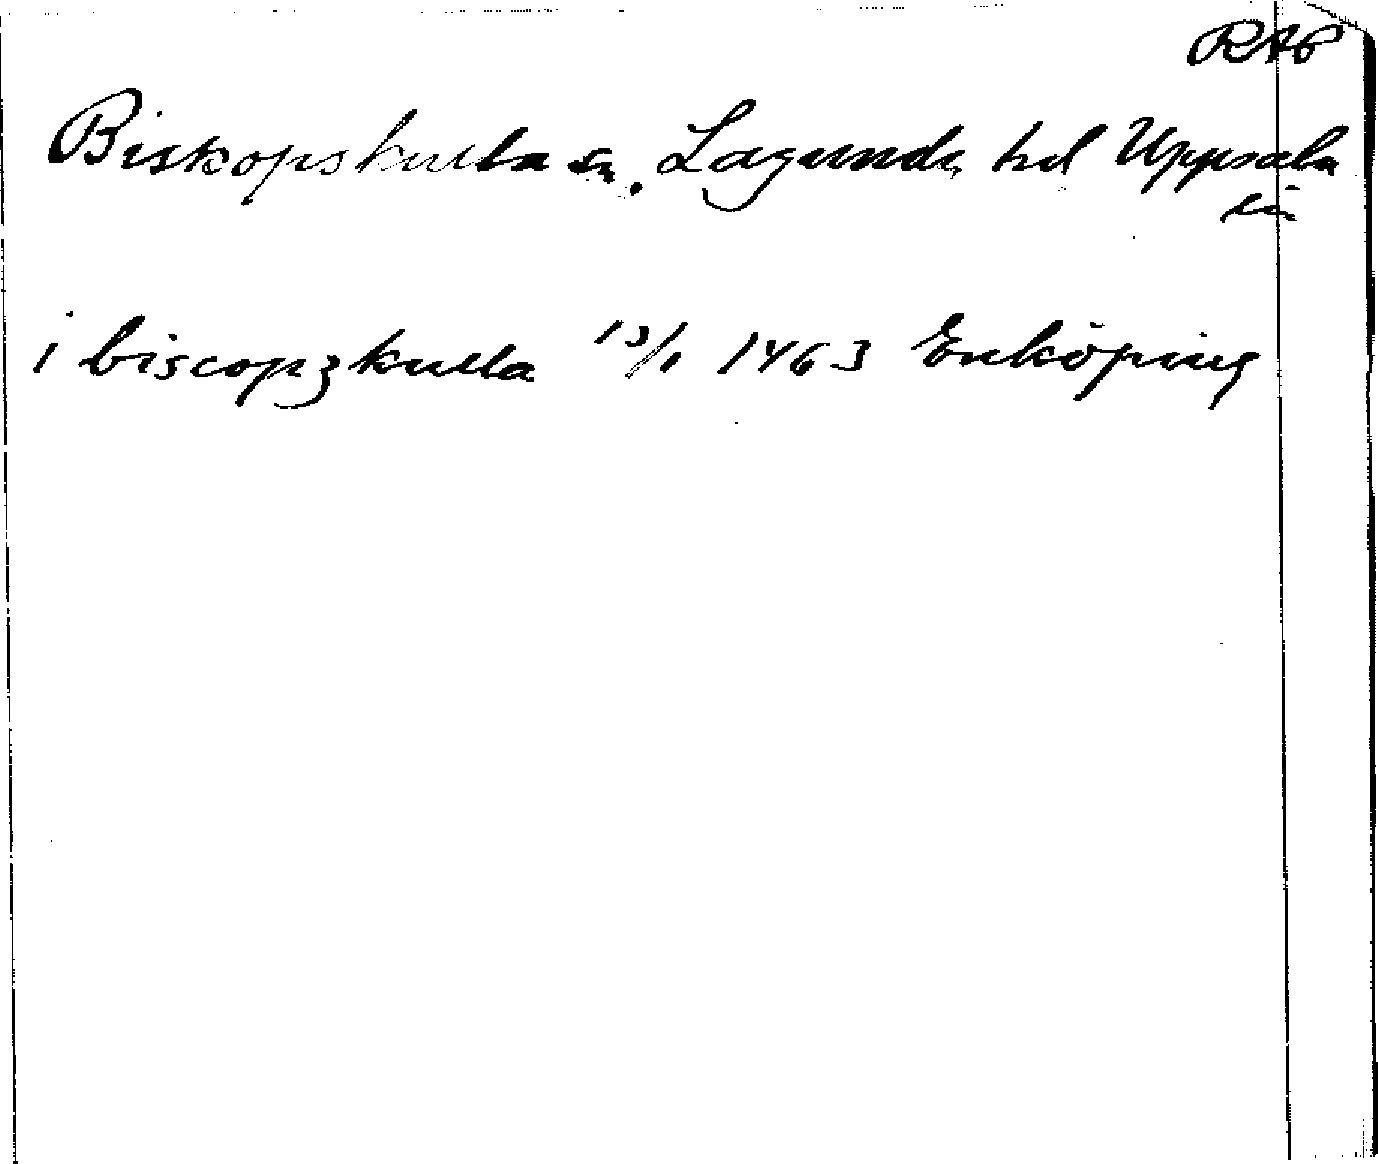 RAP
Biskopskulla sn. Lagunda hd Uppsala
län
i biscopzkulla 13/1 1463 Enköping